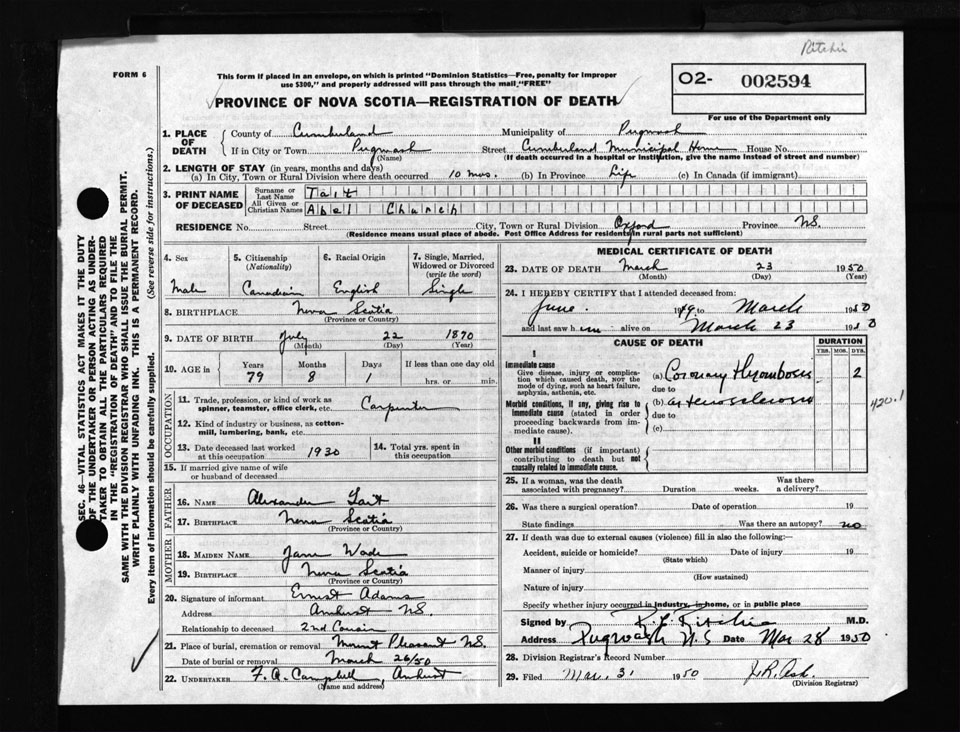 Ritchie
FORM 6
This form if placed in an envelope, on which is printed "Dominion Statistics—Free, penalty for improper
use $300," and properly addressed will pass through the mail "FREE"
PROVINCE OF NOVA SCOTIA—REGISTRATION OF DEATH
O2- 002594
For use of the Department only
1. PLACE OF DEATH County of Cumberland Municipality of Pugwash
If in City or Town Pugwash (Name) Street Cumberland Municipal Home House No.
(If death occurred in a hospital or institution, give the name instead of street and number)
2. LENGTH OF STAY (in years, months and days)
(a) In City, Town or Rural Division where death occurred 10 mos. (b) In Province Life (c) In Canada (if immigrant)
3. PRINT NAME OF DECEASED Surname or Last Name Tait
All Given or Christian Names Abel Church
RESIDENCE No. Street City, Town or Rural Division Oxford Province NS.
(Residence means usual place of abode. Post Office Address for residents in rural parts not sufficient)
4. Sex 5. Citizenship (Nationality) 6. Racial Origin 7. Single, Married, Widowed or Divorced (write the word)
Male Canadian English Single
8. BIRTHPLACE Nova Scotia
(Province or Country)
9. DATE OF BIRTH July 22 1870
(Month) (Day) (Year)
10. AGE in Years Months Days If less than one day old
79 8 1 hrs. or min.
OCCUPATION
11. Trade, profession, or kind of work as
spinner, teamster, office clerk, etc. Carpenter
12. Kind of industry or business, as cotton-
mill, lumbering, bank, etc.
13. Date deceased last worked at this occupation 1930 14. Total yrs. spent in this occupation
15. If married give name of wife
or husband of deceased
FATHER
16. NAME Alexander Tait
17. BIRTHPLACE Nova Scotia
(Province or Country)
MOTHER
18. MAIDEN NAME Jane Wade
19. BIRTHPLACE Nova Scotia
(Province or Country)
20. Signature of informant Ernest Adams
Address Amherst NS.
Relationship to deceased 2nd Cousin
21. Place of burial, cremation or removal Mount Pleasant NS.
Date of burial or removal March 26/50
22. UNDERTAKER F. A. Campbell, Amherst
(Name and address)
MEDICAL CERTIFICATE OF DEATH
23. DATE OF DEATH March 23 1950
(Month) (Day) (Year)
24. I HEREBY CERTIFY that I attended deceased from:
June 1949 to March 1950
and last saw him alive on March 23 1950
CAUSE OF DEATH DURATION
YRS. MOS. DYS.
I
Immediate cause
Give disease, injury or complica-
tion which caused death, NOT the
mode of dying, such as heart failure,
asphyxia, asthenia, etc.
(a) Coronary Thrombosis 2
due to
Morbid conditions, if any, giving rise to
immediate cause (stated in order
proceeding backwards from im-
mediate cause).
(b) arteriosclerosis
due to
(c)
420.1
II
Other morbid conditions (if important)
contributing to death but not
causally related to immediate cause.
25. If a woman, was the death Was there
associated with pregnancy? Duration weeks. a delivery?
26. Was there a surgical operation? Date of operation 19
State findings Was there an autopsy? no
27. If death was due to external causes (violence) fill in also the following:—
Accident, suicide or homicide? Date of injury 19
(State which)
Manner of injury
(How sustained)
Nature of injury
Specify whether injury occurred in industry, in home, or in public place
Signed by R. L. Ritchie M.D.
Address Pugwash N.S Date Mar 28 1950
28. Division Registrar's Record Number
29. Filed Mar. 31 1950 J. R. Ash.
(Division Registrar)
SEC. 46—VITAL STATISTICS ACT MAKES IT THE DUTY
OF THE UNDERTAKER OR PERSON ACTING AS UNDER-
TAKER TO OBTAIN ALL THE PARTICULARS REQUIRED
IN THE "REGISTRATION OF DEATH" AND TO FILE THE
SAME WITH THE DIVISION REGISTRAR WHO SHALL ISSUE THE BURIAL PERMIT.
WRITE PLAINLY WITH UNFADING INK. THIS IS A PERMANENT RECORD.
Every item of information should be carefully supplied. (See reverse side for instructions.)